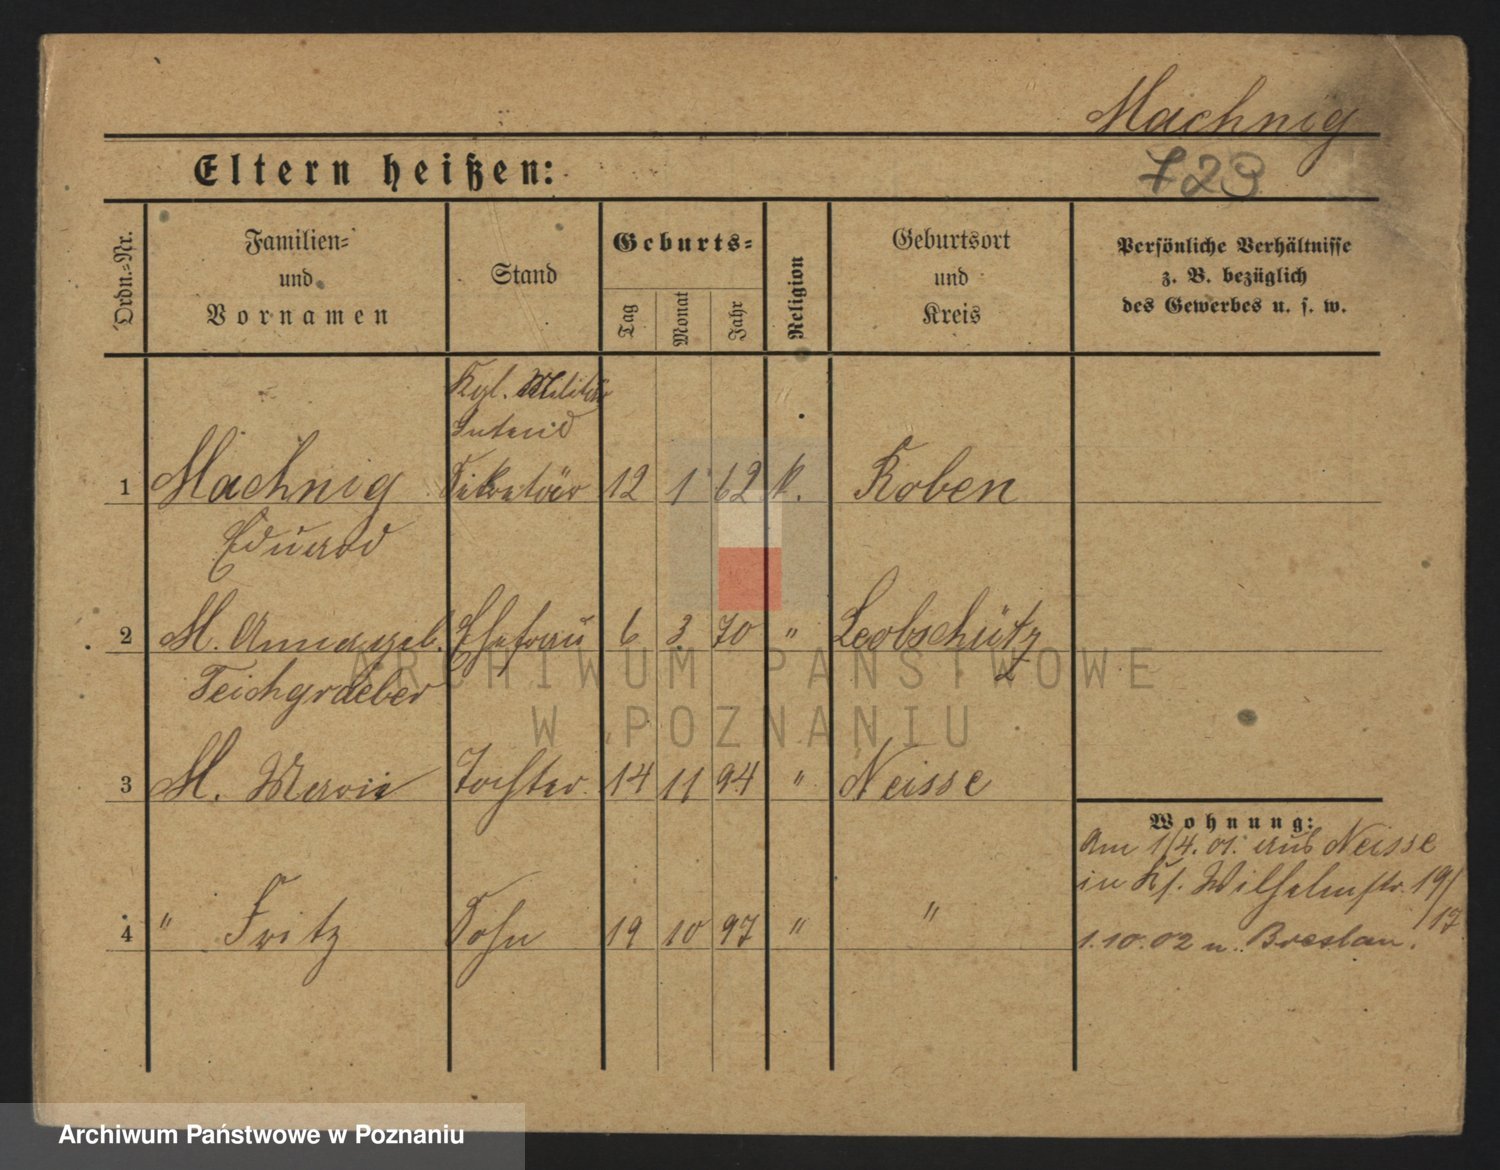 Machnig
723
Eltern heißen:
Ordn.=Nr.
Familien=
und
Vornamen
Stand
Geburts=
Tag
Monat
Jahr
Religion
Geburtsort
und
Kreis
Persönliche Verhältnisse
z. B. bezüglich
des Gewerbes u. s. w.
Kgl. Militär
Intend
1 Machnig Sekretär 12 1 62 k. Roben
Eduard
2 M. Anna geb. Ehefrau 6 3 70 " Leobschütz
Teichgraeber
3 M. Marie Tochter 14 11 94 " Neisse
Wohnung:
Am 1/4. 01. aus Neisse
in Ks. Wilhelmstr. 19/
17
4 " Fritz Sohn 19 10 97 " "
1.10.02 n. Breslau.
ARCHIWUM PAŃSTWOWE
W POZNANIU
Archiwum Państwowe w Poznaniu